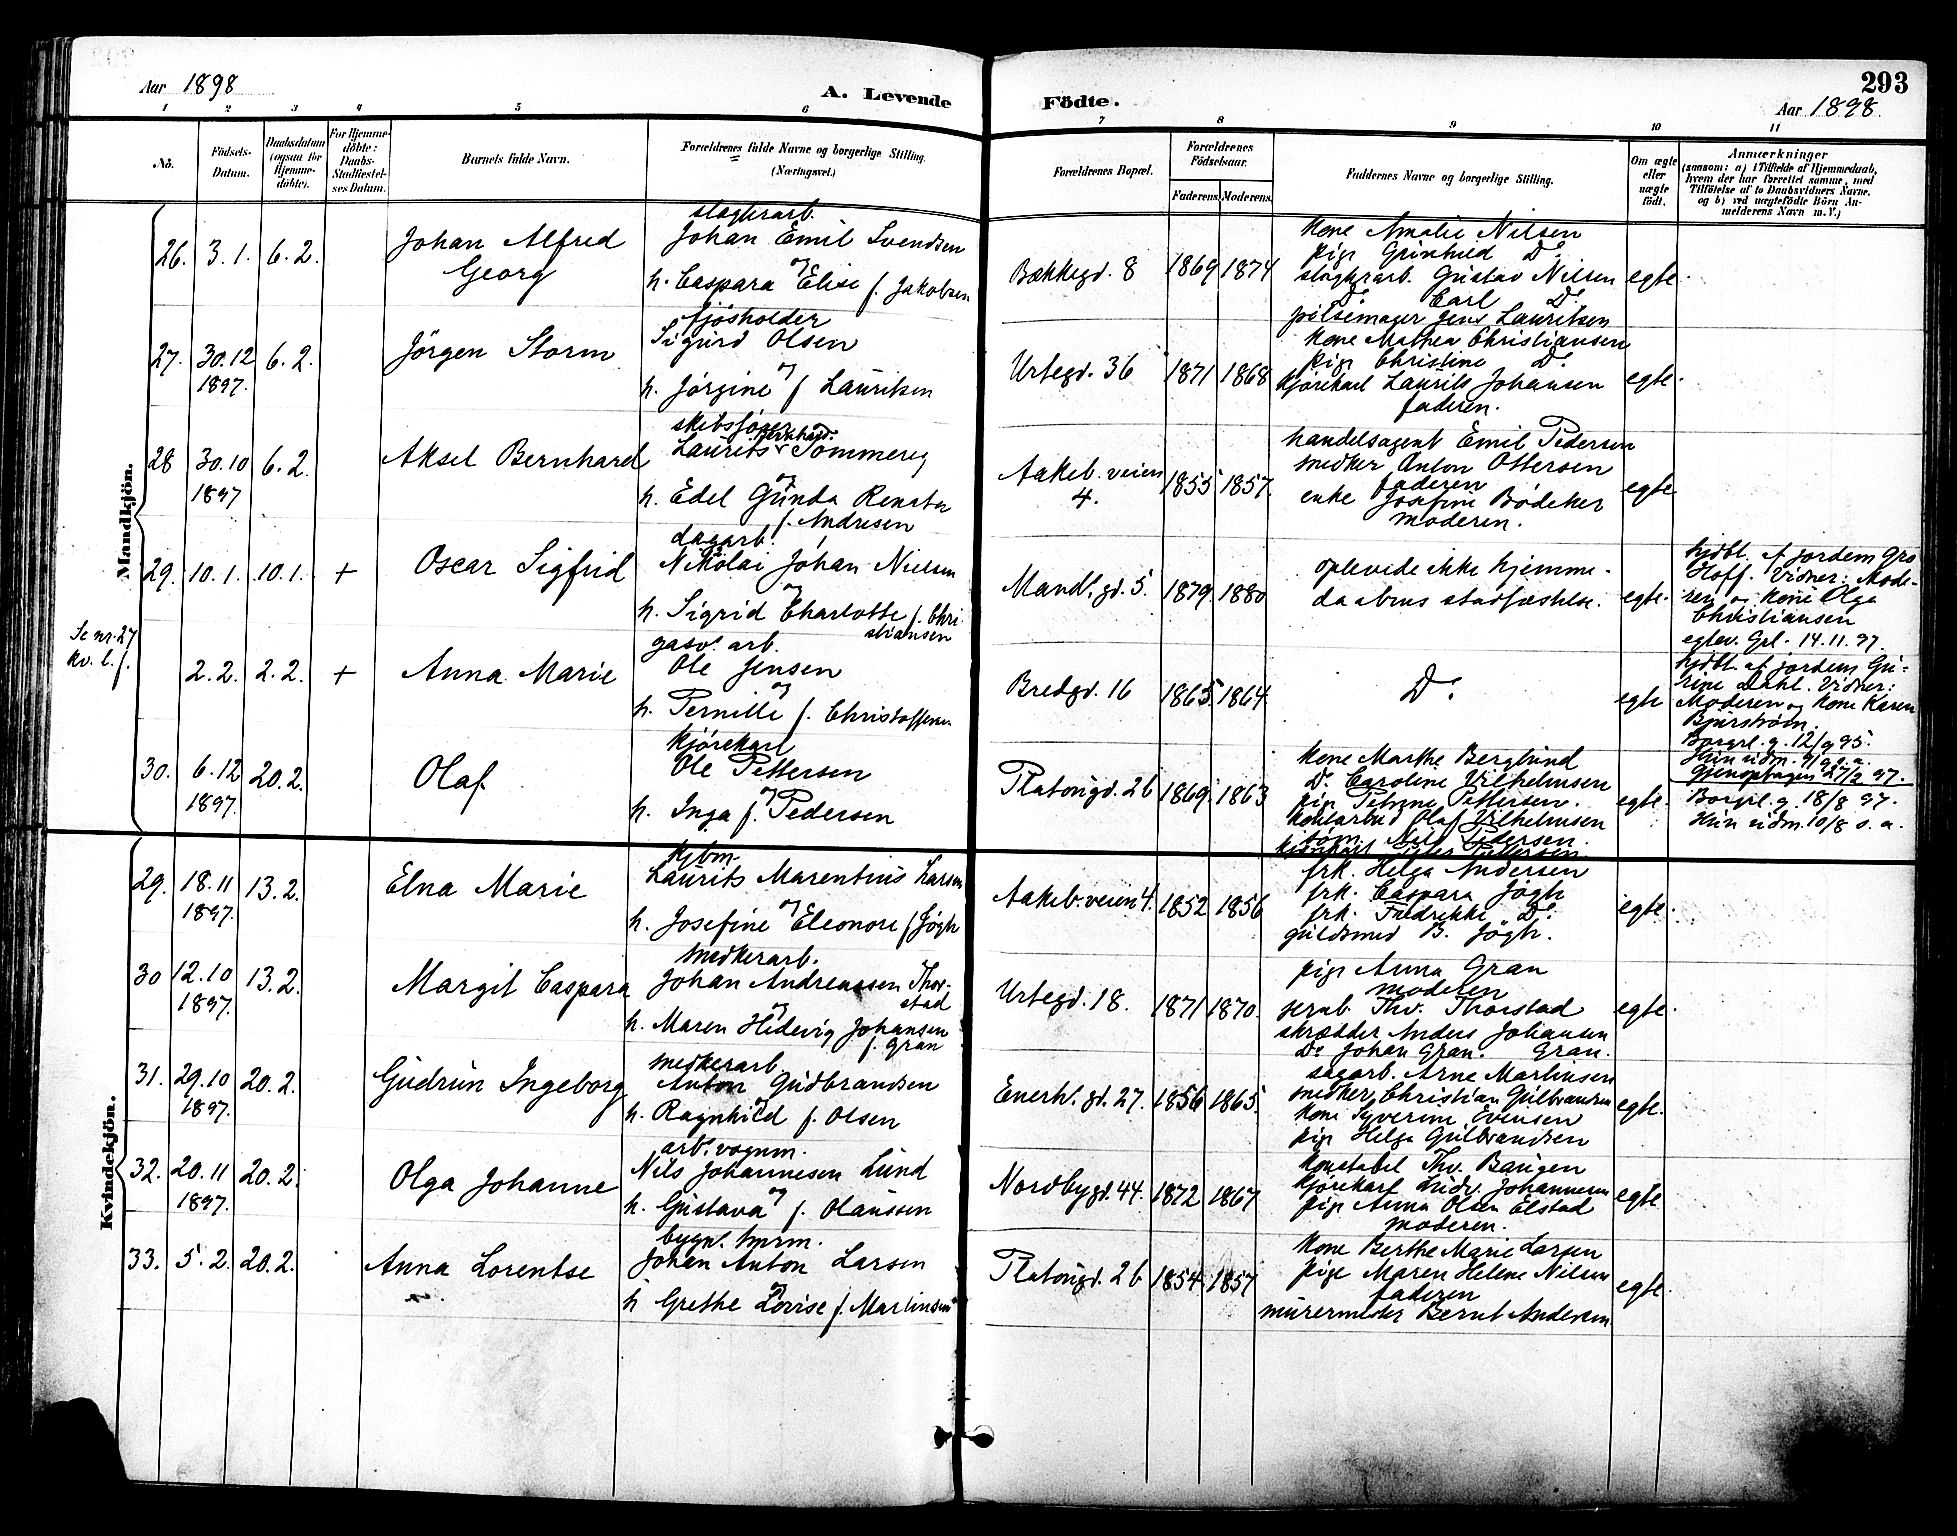 293
Aar 1898
A. Levende Födte.
Aar 1898.
1 2 3 4 5 6 7 8 9 10 11
No.
Födsels-Datum.
Daabsdatum (ogsaa for Hjemmedöbte).
For Hjemmedöbte: Daabs-Stadfæstelses Datum.
Barnets fulde Navn.
Forældrenes fulde Navne og borgerlige Stilling.
(Næringsvei.)
Forældrenes Bopæl.
Forældrenes Födselsaar.
Faderens. Moderens.
Faddernes Navne og borgerlige Stilling.
Om ægte eller uægte født.
Anmærkninger
(saasom: a) i Tilfælde af Hjemmedaab,
hvem der har forrettet samme, med
Tilföielse af to Daabsvidners Navne,
og b) ved uægtefödte Börn Anmelderens Navn m.V.)
Mandkjön.
26. 3.1. 6.2.
Johan Alfred
Georg
slagterarb.
Johan Emil Svendsen
og
h. Caspara Elise f. Jakobsen
Bakkegd. 8 1869 1874
kone Amalie Nilsen
pige Grinhild Do
slagterarb. Gustav Nilsen
Do Carl Do
pølsemager Jens Lauritsen
egte.
27. 30.12 1897. 6.2.
Jörgen Storm
fjøsholder
Sigurd Olsen
og
h. Jörgine f. Lauritsen
Urtegd. 36 1871 1868
kone Mathea Christiansen
pige Christine Do
kjørekarl Laurits Johansen
faderen.
egte.
28 30.10 1897 6.2.
Aksel Bernhard
skibsfører
Laurits Bernhard Sommereg
og
h. Edel Gunda Renata
f. Andresen
Aakeb. veien 4. 1855 1857.
handelsagent Emil Pedersen
snedker Anton Ottersen
faderen
enke Josefine Bödeker
moderen.
egte
29. 10.1. 10.1. +
Oscar Sigfrid
dagarb.
Nikolai Johan Nielsen
og
h. Sigrid Charlotte f. Christiansen
Mandl. gd. 5. 1879. 1880
oplevede ikke hjemme-
daabens stadfæstelse.
egte.
hjdbt. af jordem. Gro
Hoff. Vidner: Moderen og kone Olga
Christiansen
egtev. Grl. 14.11.97.
Se nr. 27
kv. l. f.
2.2. 2.2. +
Anna Marie
gasv. arb.
Ole Jensen
og
h. Pernille f. Christoffersen
Bredgd. 16 1865. 1864.
Do
egte
hjdbt. af jordem. Gurine Dahl. Vidner:
Moderen og kone Karen
Bjurström.
Borgrl. g. 12/9 95.
30. 6.12 1897. 20.2.
Olaf
kjørekarl
Ole Pettersen
og
h. Inga f. Pedersen
Platougd. 26 1869. 1863
kone Marthe Berglund
Do Caroline Vilhelmsen
pige Petrine Pettersen.
kontorbud Olaf Vilhelmsen
tøm. Nils Pedersen.
egte.
Gjenoptagen 27/2 97.
Borgrl. g. 18/8 97.
Hun uidm. 10/8 s. a.
Kvindekjön.
29. 18.11 1897. 13.2.
Elna Marie
kjbm.
Laurits Marentius Larsen
og
h. Josefine Eleonore f. Jøgh
Aakeb. veien 4. 1852 1856
frk. Helga Andersen
frk. Caspara Jøgh
frk. Fredrikke Do
guldsmed B. Jøgh.
egte.
30 12.10 1897. 13.2.
Margit Caspara
snedkerarb.
Johan Andreassen Thorstad
og
h. Maren Hedevig Johansen
f. Gran
Urtegd. 18. 1871 1870.
pige Anna Gran
moderen
Thv. Thorstad
skrædder Anders Johansen Gran.
Do Johan Gran.
egte.
31. 29.10 1897. 20.2.
Gudrun Ingeborg
snedkerarb.
Anton Gudbrandsen
og
h. Ragnhild f. Olsen
Enerh. gd. 27. 1856 1865.
sagarb. Arne Martinsen
snedker Christian Gulbrandsen
kone Syverine Evensen
pige Helga Gulbrandsen
egte.
32. 20.11 1897. 20.2.
Olga Johanne
arb. vognm.
Nils Johannesen Lund
og
h. Gustava f. Olaussen
Nordbygd. 44. 1872 1867
konstabel Thv. Baugen
kjørekarl Ludv. Johannesen
pige Anna Olsen Elstad
moderen.
egte
33. 5.2. 20.2.
Anna Lorentse
bygn. tmrm.
Johan Anton Larsen
og
h Grethe Lovise f. Martinsen
Platougd. 26 1854 1857
kone Berthe Marie Larsen
pige Maren Helene Nilsen
faderen
murermester Bernt Andersen
egte.